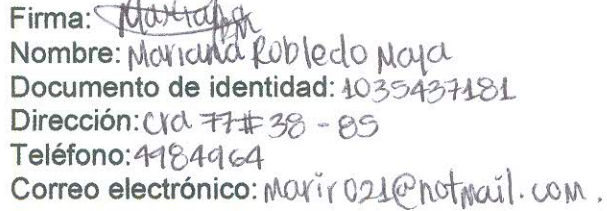 Firma:
Nombre: Mariana Robledo Maya
Documento de identidad: 1035437181
Dirección: Crd 77 # 38 - 85
Teléfono: 4984964
Correo electrónico: marir021@hotmail.com.